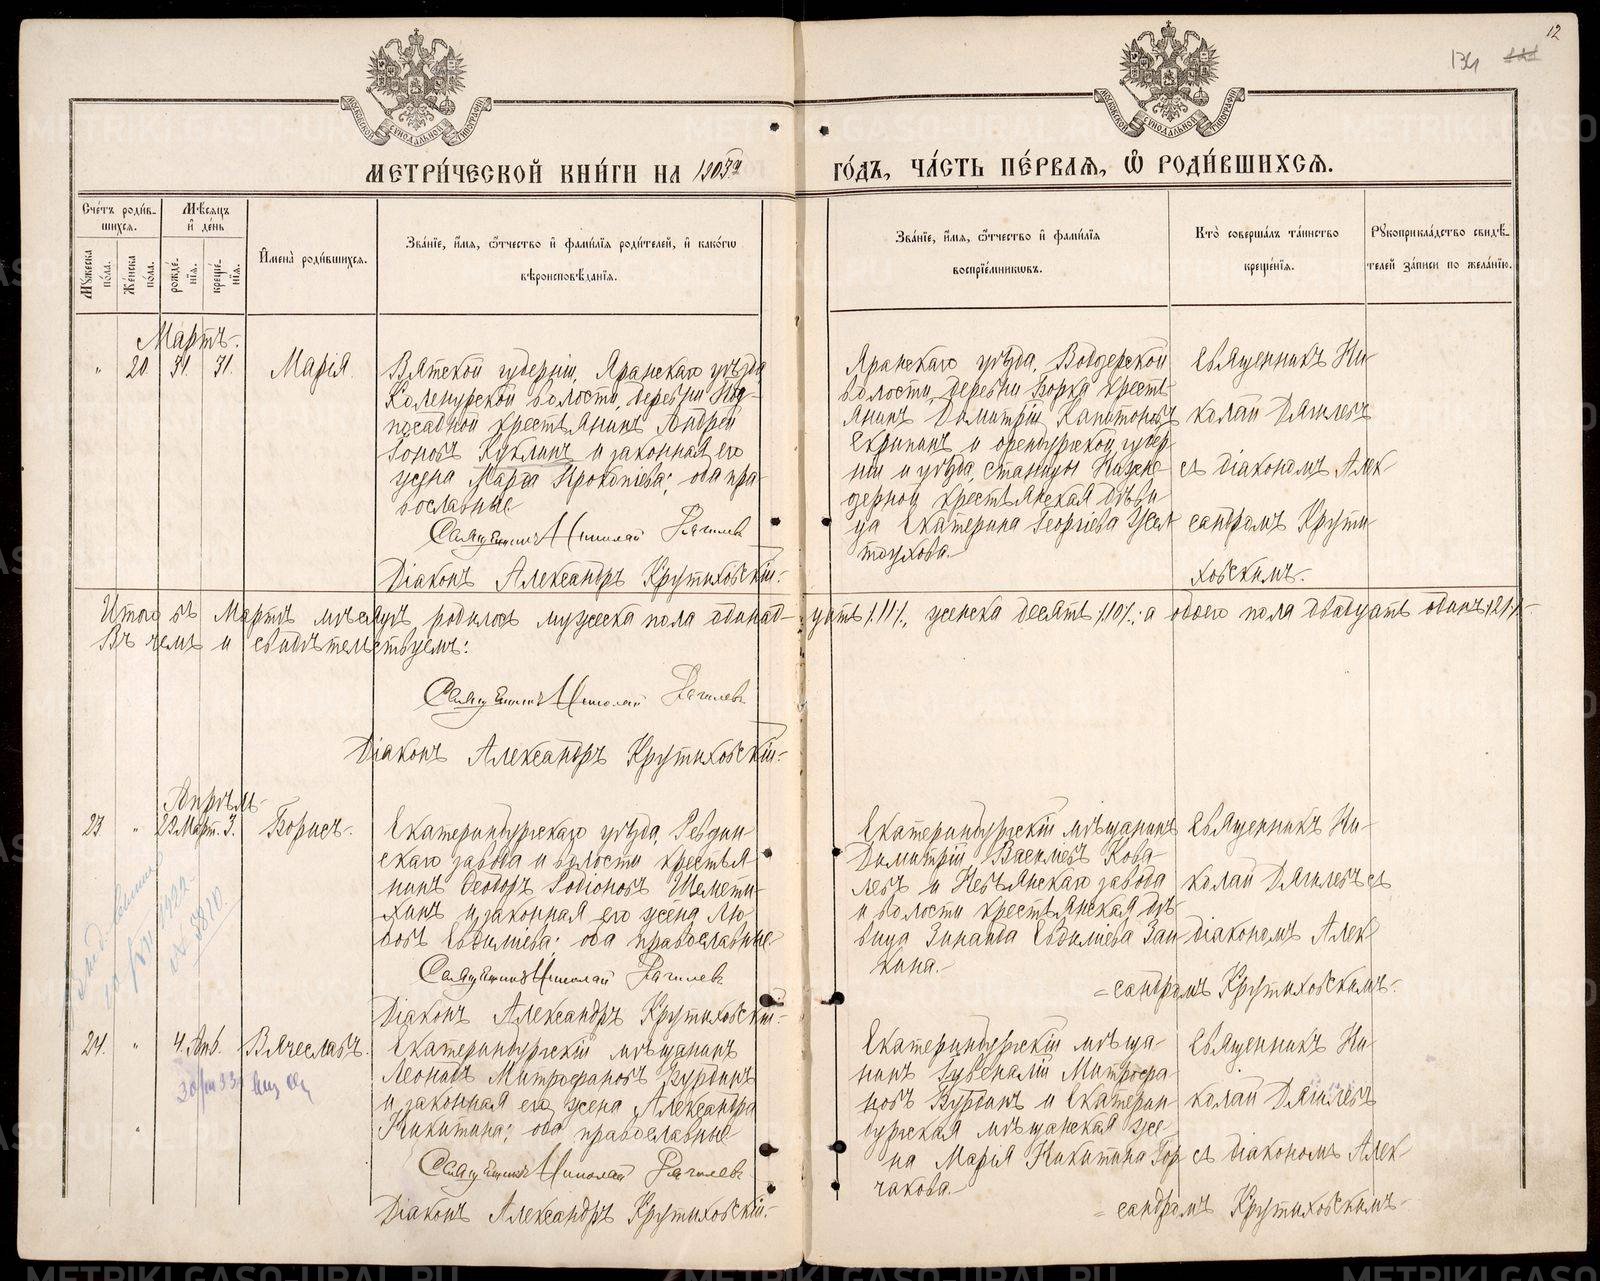 12
134
МЕТРИ́ЧЕСКОЙ КНИ́ГИ НА 1903й ГО́ДЪ, ЧА́СТЬ ПЕ́РВАЯ, Ѡ҆ РОДИ́ВШИХСЯ.
Сче́тъ роди́в-
шихся.
Мѣ́сяцъ
и҆ де́нь
Мꙋ́жеска по́ла.
Же́нска по́ла.
рожде́-нїя.
креще́-нїя.
И҆мена̀ роди́вшихся.
Зва́нїе, и҆́мя, ѻ҆́тчество и҆ фами́лїя роди́телей, и҆ како́гѡ
вѣроисповѣ́данїя.
Зва́нїе, и҆́мя, ѻ҆́тчество и҆ фами́лїя
воспрїе́мникѡвъ.
Кто̀ соверша́лъ та́инство
креще́нїя.
Рꙋкоприкла́дство свидѣ́-
телей за́писи по жела́нїю.
Мартъ.
" 20 31 31. Марія.
Вятской губерніи, Яранскаго уѣзда,
волости, деревни
крестьянинъ Андрей
Іоновъ Куклинъ и законная его
жена Марѳа Прокопіева; оба пра-
вославные
Священникъ Николай Дягилевъ
Діаконъ Александръ Крутиховскій.
Яранскаго уѣзда,
волости, деревни Борка кресть-
янинъ Димитрій Капитоновъ
Скрипинъ и оренбургской губер-
ніи и уѣзда, станицы
крестьянская дѣви-
ца Екатерина Георгіева Жел
тоухова.
Священникъ Ни-
колай Дягилевъ
съ діакономъ Алек-
сандромъ Крути-
ховскимъ.
Итого въ Мартѣ мѣсяцѣ родилось мужеска пола одинад-цать /:11:/, женска десять /:10:/; а обоего пола двадцать одинъ /:21:/.
Въ чемъ и свидѣтельствуемъ:
Священникъ Николай Дягилевъ
Діаконъ Александръ Крутиховскій.
Апрѣль.
23. " 29 Март. 3. Борисъ.
Екатеринбургскаго уѣзда, Ревдин-
скаго завода и волости крестья-
нинъ Ѳеодоръ Родіоновъ Шемети-
хинъ и законная его жена Лю-
бовь Евдиміева; оба православные
Священникъ Николай Дягилевъ
Діаконъ Александръ Крутиховскій.
Екатеринбургскій мѣщанинъ
Димитрій Васильевъ Кова-
левъ и Невьянскаго завода
и волости крестьянская дѣ-
вица Зинаида Евдиміева Заи
кина.
Священникъ Ни-
колай Дягилевъ съ
діакономъ Алек-
=сандромъ Крутиховскимъ.
1922.
24. " 4 Вячеславъ.
Екатеринбургскій мѣщанинъ
Леонидъ Митрофановъ Курбинъ
и законная его жена Александра
Никитина; оба православные
Священникъ Николай Дягилевъ
Діаконъ Александръ Крутиховскій.
Екатеринбургскій мѣща-
нинъ Ювеналій Митрофа-
новъ Курбинъ и Екатерин-
бургская мѣщанская же-
на Марья Никитина Гор
чакова.
Священникъ Ни-
колай Дягилевъ
съ діакономъ Алек-
=сандромъ Крутиховскимъ.
METRIKI.GASO-URAL.RU